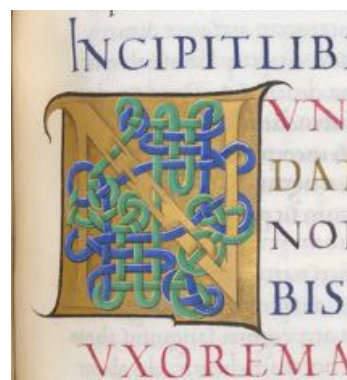 INCIPITLIB
NVN
DA
NO
BIS
VXOREMA